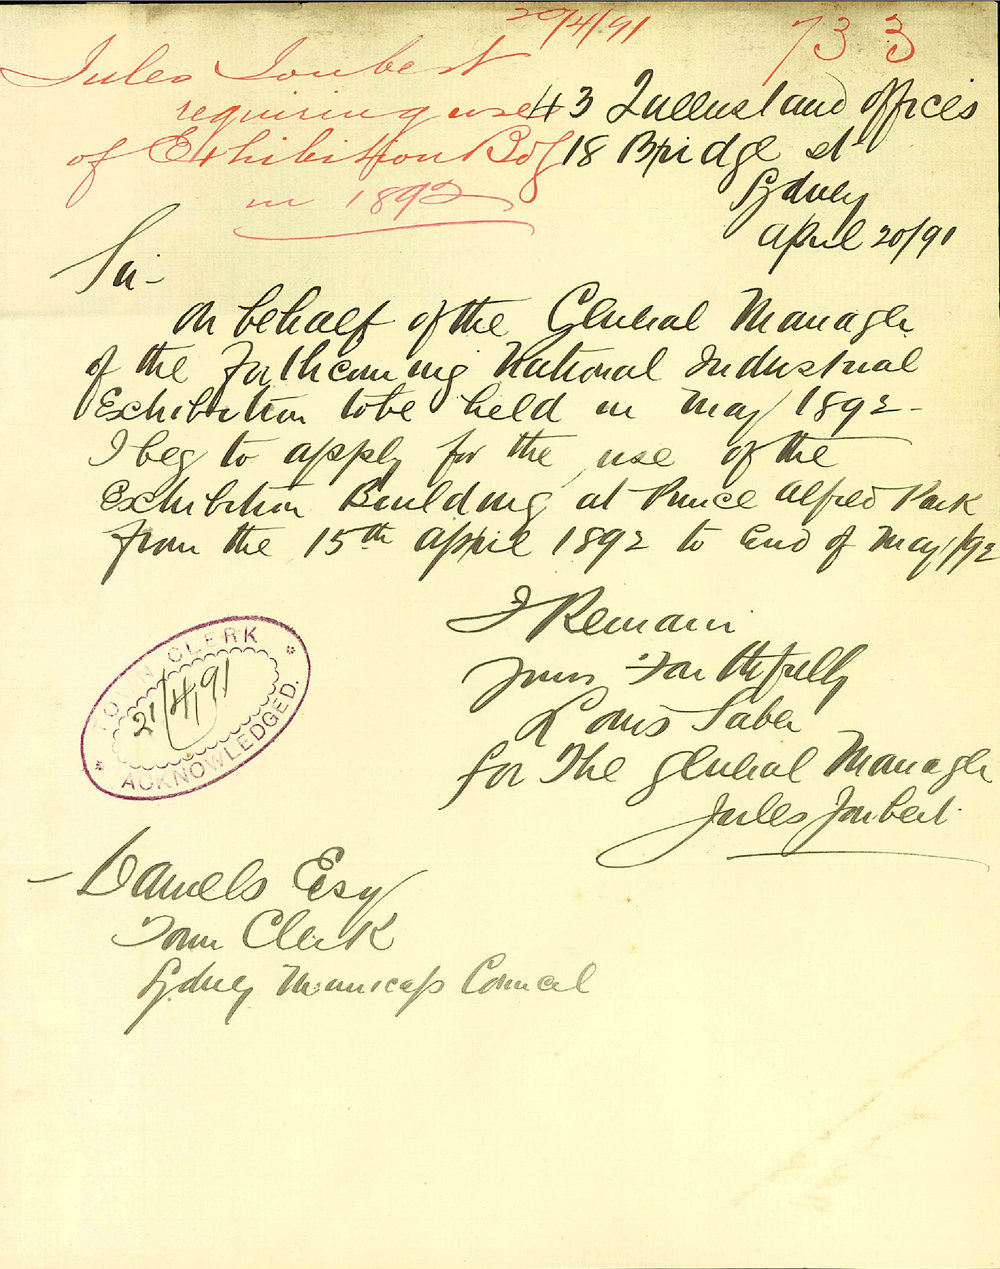 20/4/91
733
Jules Joubert
requiring use
of Exhibition Bdg
in 1892
43 Queensland offices
18 Bridge st
Sydney
April 20/91
Sir-
On behalf of the General Manager
of the forthcoming National Industrial
Exhibition to be held in May 1892-
I beg to apply for the use of the
Exhibition Building at Prince Alfred Park
from the 15th April 1892 to End of May/92
I Remain
Yours Faithfully
Louis Saber
for The General Manager
Jules Joubert
TOWN CLERK
21/4/91
ACKNOWLEDGED.
- Daniels Esq
Town Clerk
Sydney Council